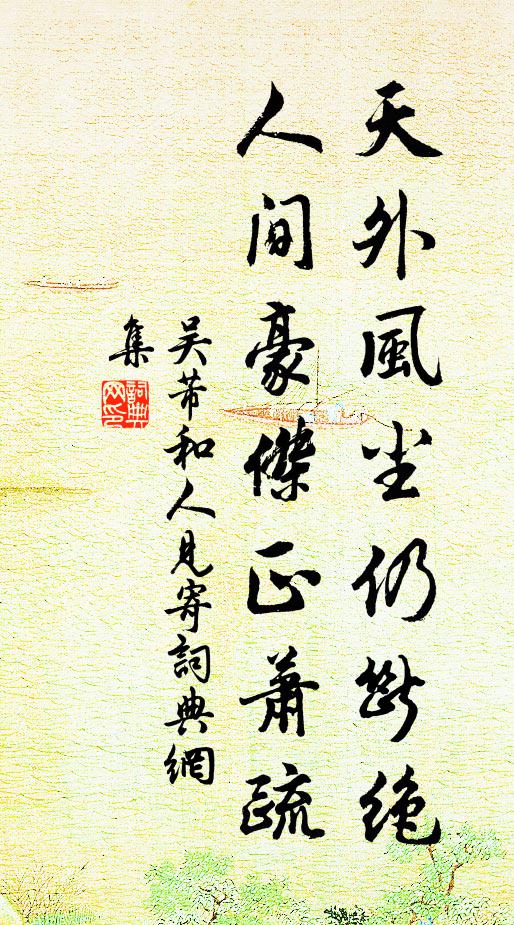 天外風尘仍斷絶
人間豪傑正蕭疏
吴芾和人見寄詞典網
集
詞典
网印